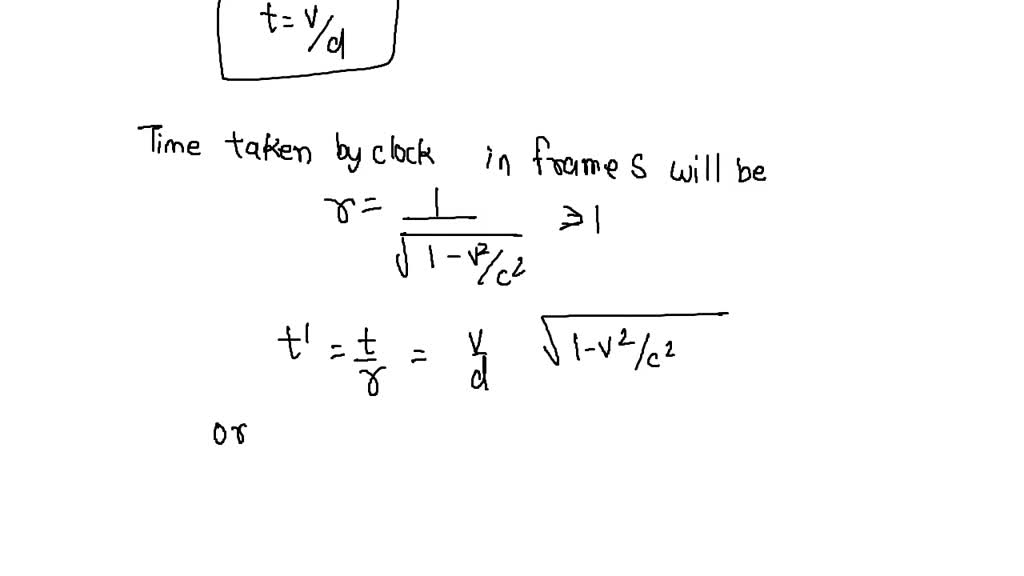 t = v/d
Time taken by clock in frame S will be
γ = 1/√(1 - v²/c²) ⩾ 1
t' = t/γ = v/d √(1-v²/c²)
or